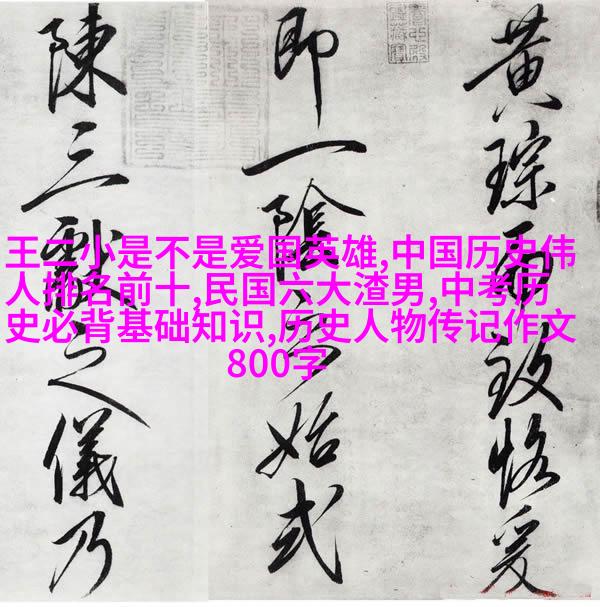 王二小是不是爱国英雄,中国历史伟
人排名前十,民国六大渣男,中考历
史必背基础知识,历史人物传记作文
800字
黄琮致恪爰
即一陰始式
陳三獻之儀乃